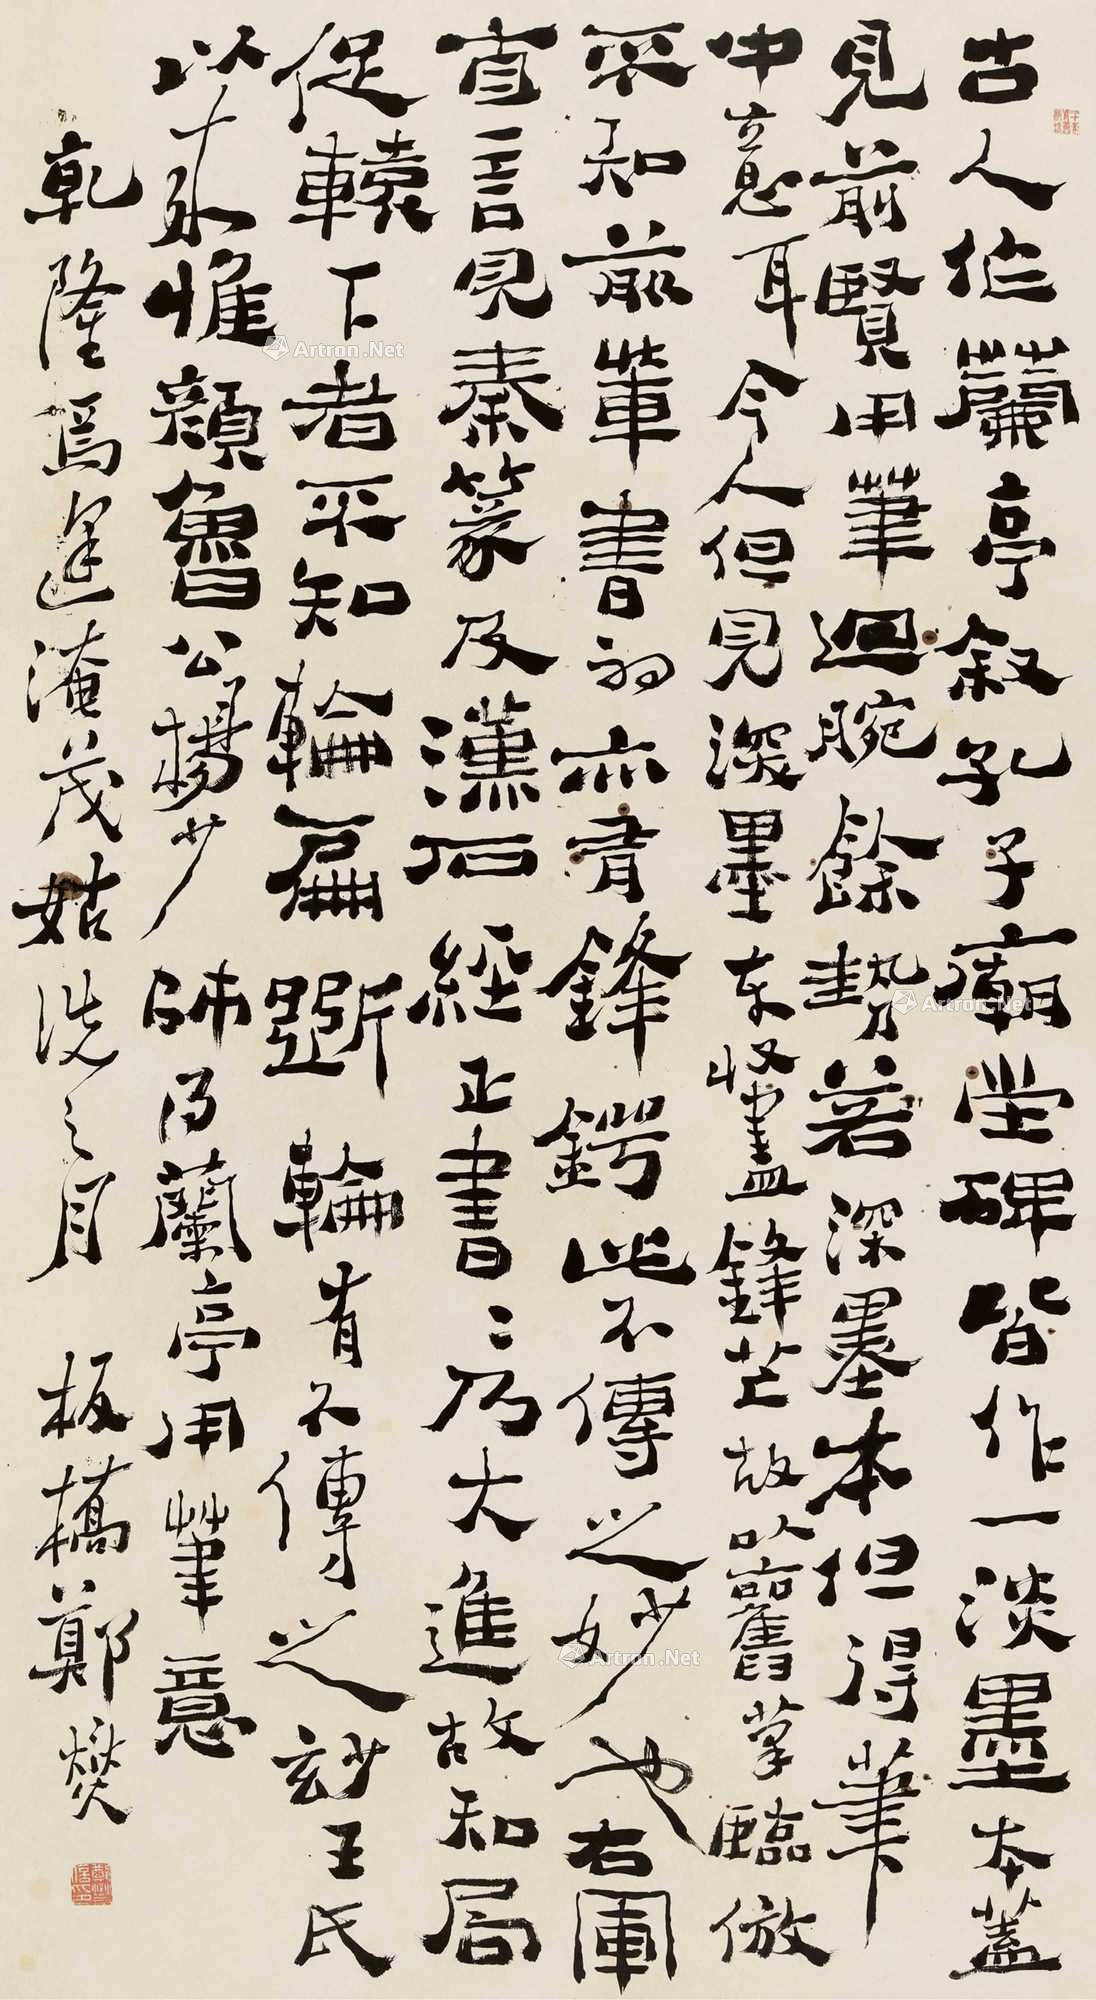 古人作蘭亭叙孔子廟堂碑皆作一淡墨本蓋
見前賢用筆迴腕餘勢若深墨本但得筆
中意耳今人但見深墨本收盡鋒芒故以舊筆臨倣
不知前輩書初亦有鋒鍔此不傳之妙也右軍
言見秦篆及漢石經正書〻乃大進故知局
促轅下者不知輪扁斲輪有不傳之玅王氏
以來惟顔魯公楊少師得蘭亭用筆意
乾隆焉逢淹茂姑洗之月 板橋鄭燮
Artron.Net
Artron.Net
Artron.Net